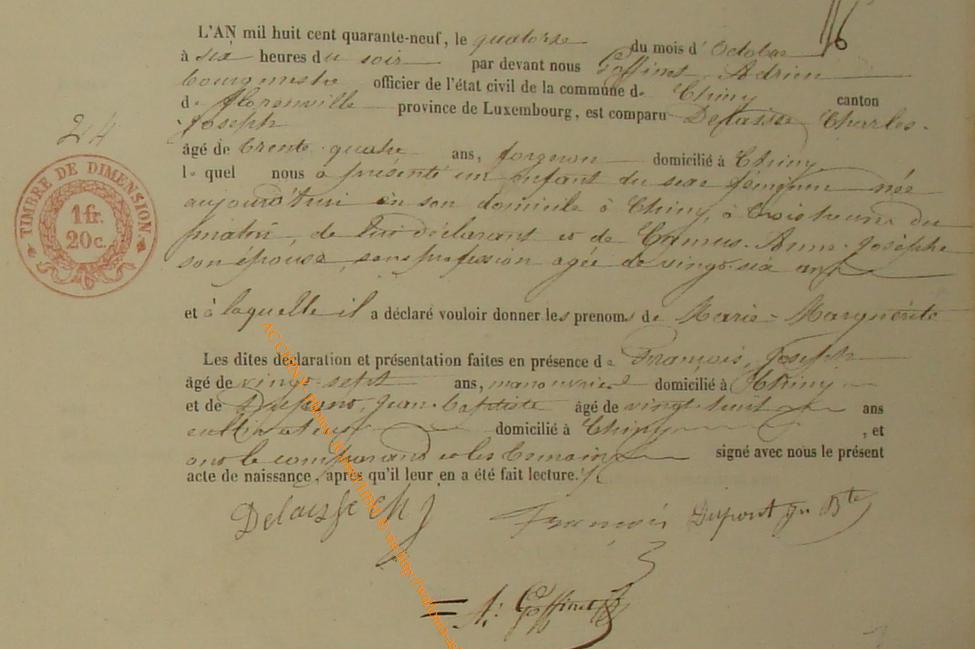 116
L'AN mil huit cent quarante-neuf, le quatorze du mois d'Octobre
à six heures du soir par devant nous Goffinet, Adrien
bourgmestre officier de l'état civil de la commune de Chiny canton
de florenville province de Luxembourg, est comparu Delaisse Charles-
Joseph
24
âgé de trente-quatre ans, forgeron domicilié à Chiny
lequel nous a présenté un enfant du sexe féminin née
aujourd'hui en son domicile à Chiny, à trois heures du
matin, de lui déclarant et de Camus Anne-Josèphe
son épouse, sans profession agée de vingt-six ans
TIMBRE DE DIMENSION
1 fr.
20 c.
et à laquelle il a déclaré vouloir donner les prenoms de Marie-Marguérite
Les dites déclaration et présentation faites en présence de François, Joseph
âgé de vingt-sept ans, manouvrier domicilié à Chiny
et de Dupont, Jean-Baptiste âgé de vingt-huit ans
cultivateur domicilié à Chiny, et
ont le comparant et les témoins signé avec nous le présent
acte de naissance, après qu'il leur en a été fait lecture.
Delaisse Ch J
François
Dupont Jn Bte
A: Goffinet